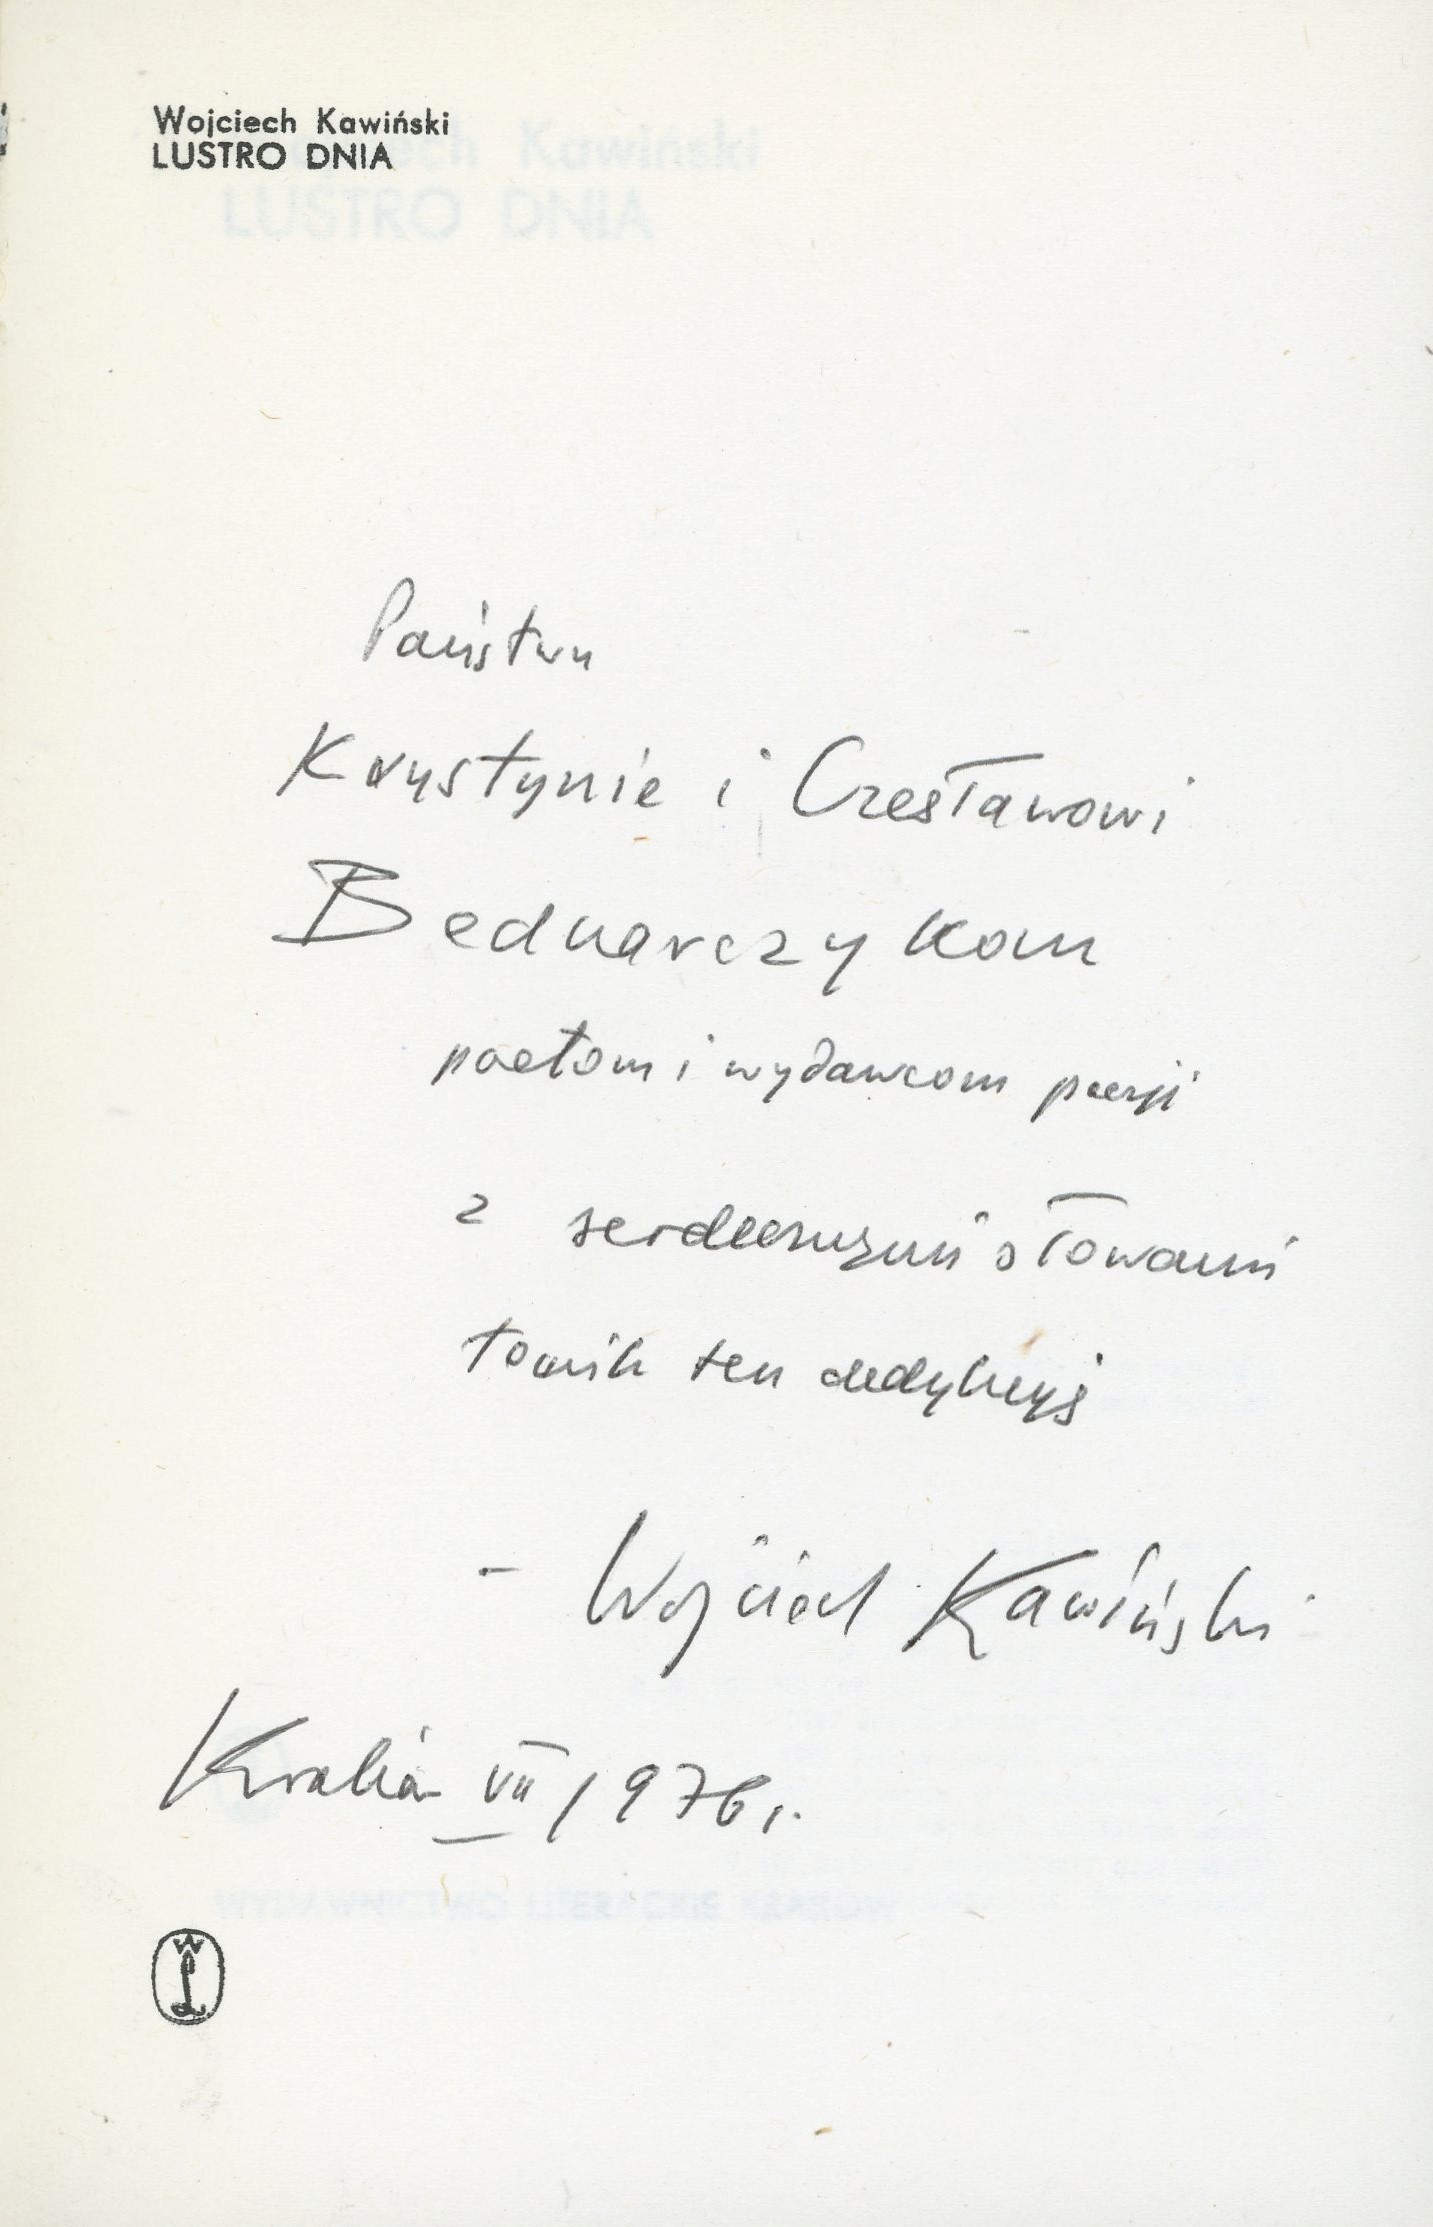 Wojciech Kawiński
LUSTRO DNIA
Państwu
Krystynie i Czesławowi
Bednarczykom
poetom i wydawcom poezji
z serdecznymi słowami
tomik ten dedykuję
- Wojciech Kawiński
Kraków VII 1976 r.
WYDAWNICTWO LITERACKIE KRAKÓW